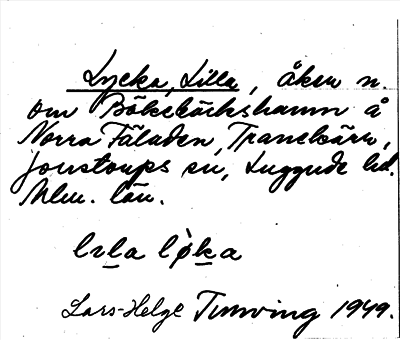 Lycka, Lilla, åker n.
om Bökebäckshamn å
Norra Fäladen, Tranekärr,
Jonstorps sn, Luggude hd.
Mlm. län.
lɩla lø̀ka
Lars-Helge Tunving 1949.